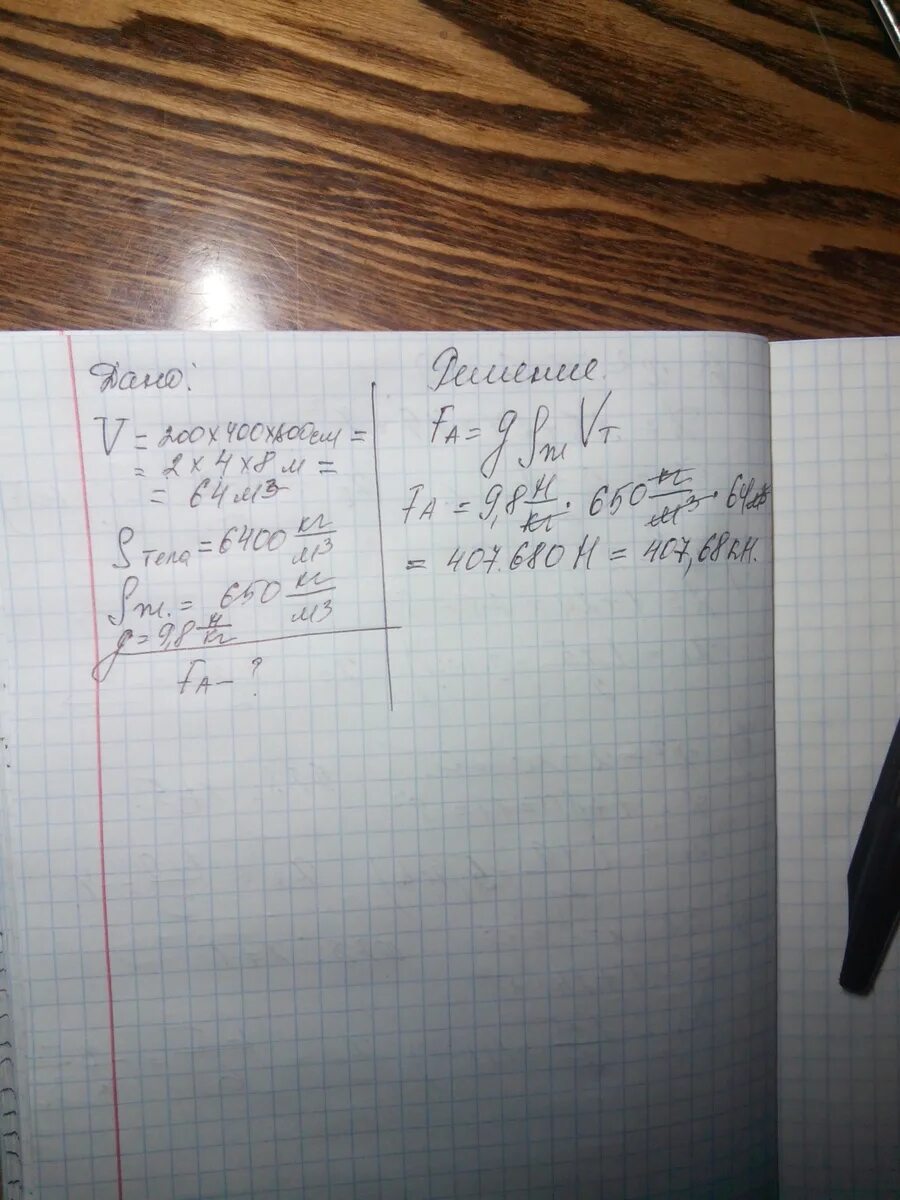 Дано:
V = 200×400×800см =
= 2 × 4 × 8 м =
= 64 м³
ρ тела = 6400 кг/м³
ρ ж. = 650 кг/м³
g = 9,8 н/кг
FА – ?
Решение.
FА = g ρж Vт
FА = 9,8 н/кг · 650 кг/м³ · 64м³
= 407.680 Н = 407,68кН.